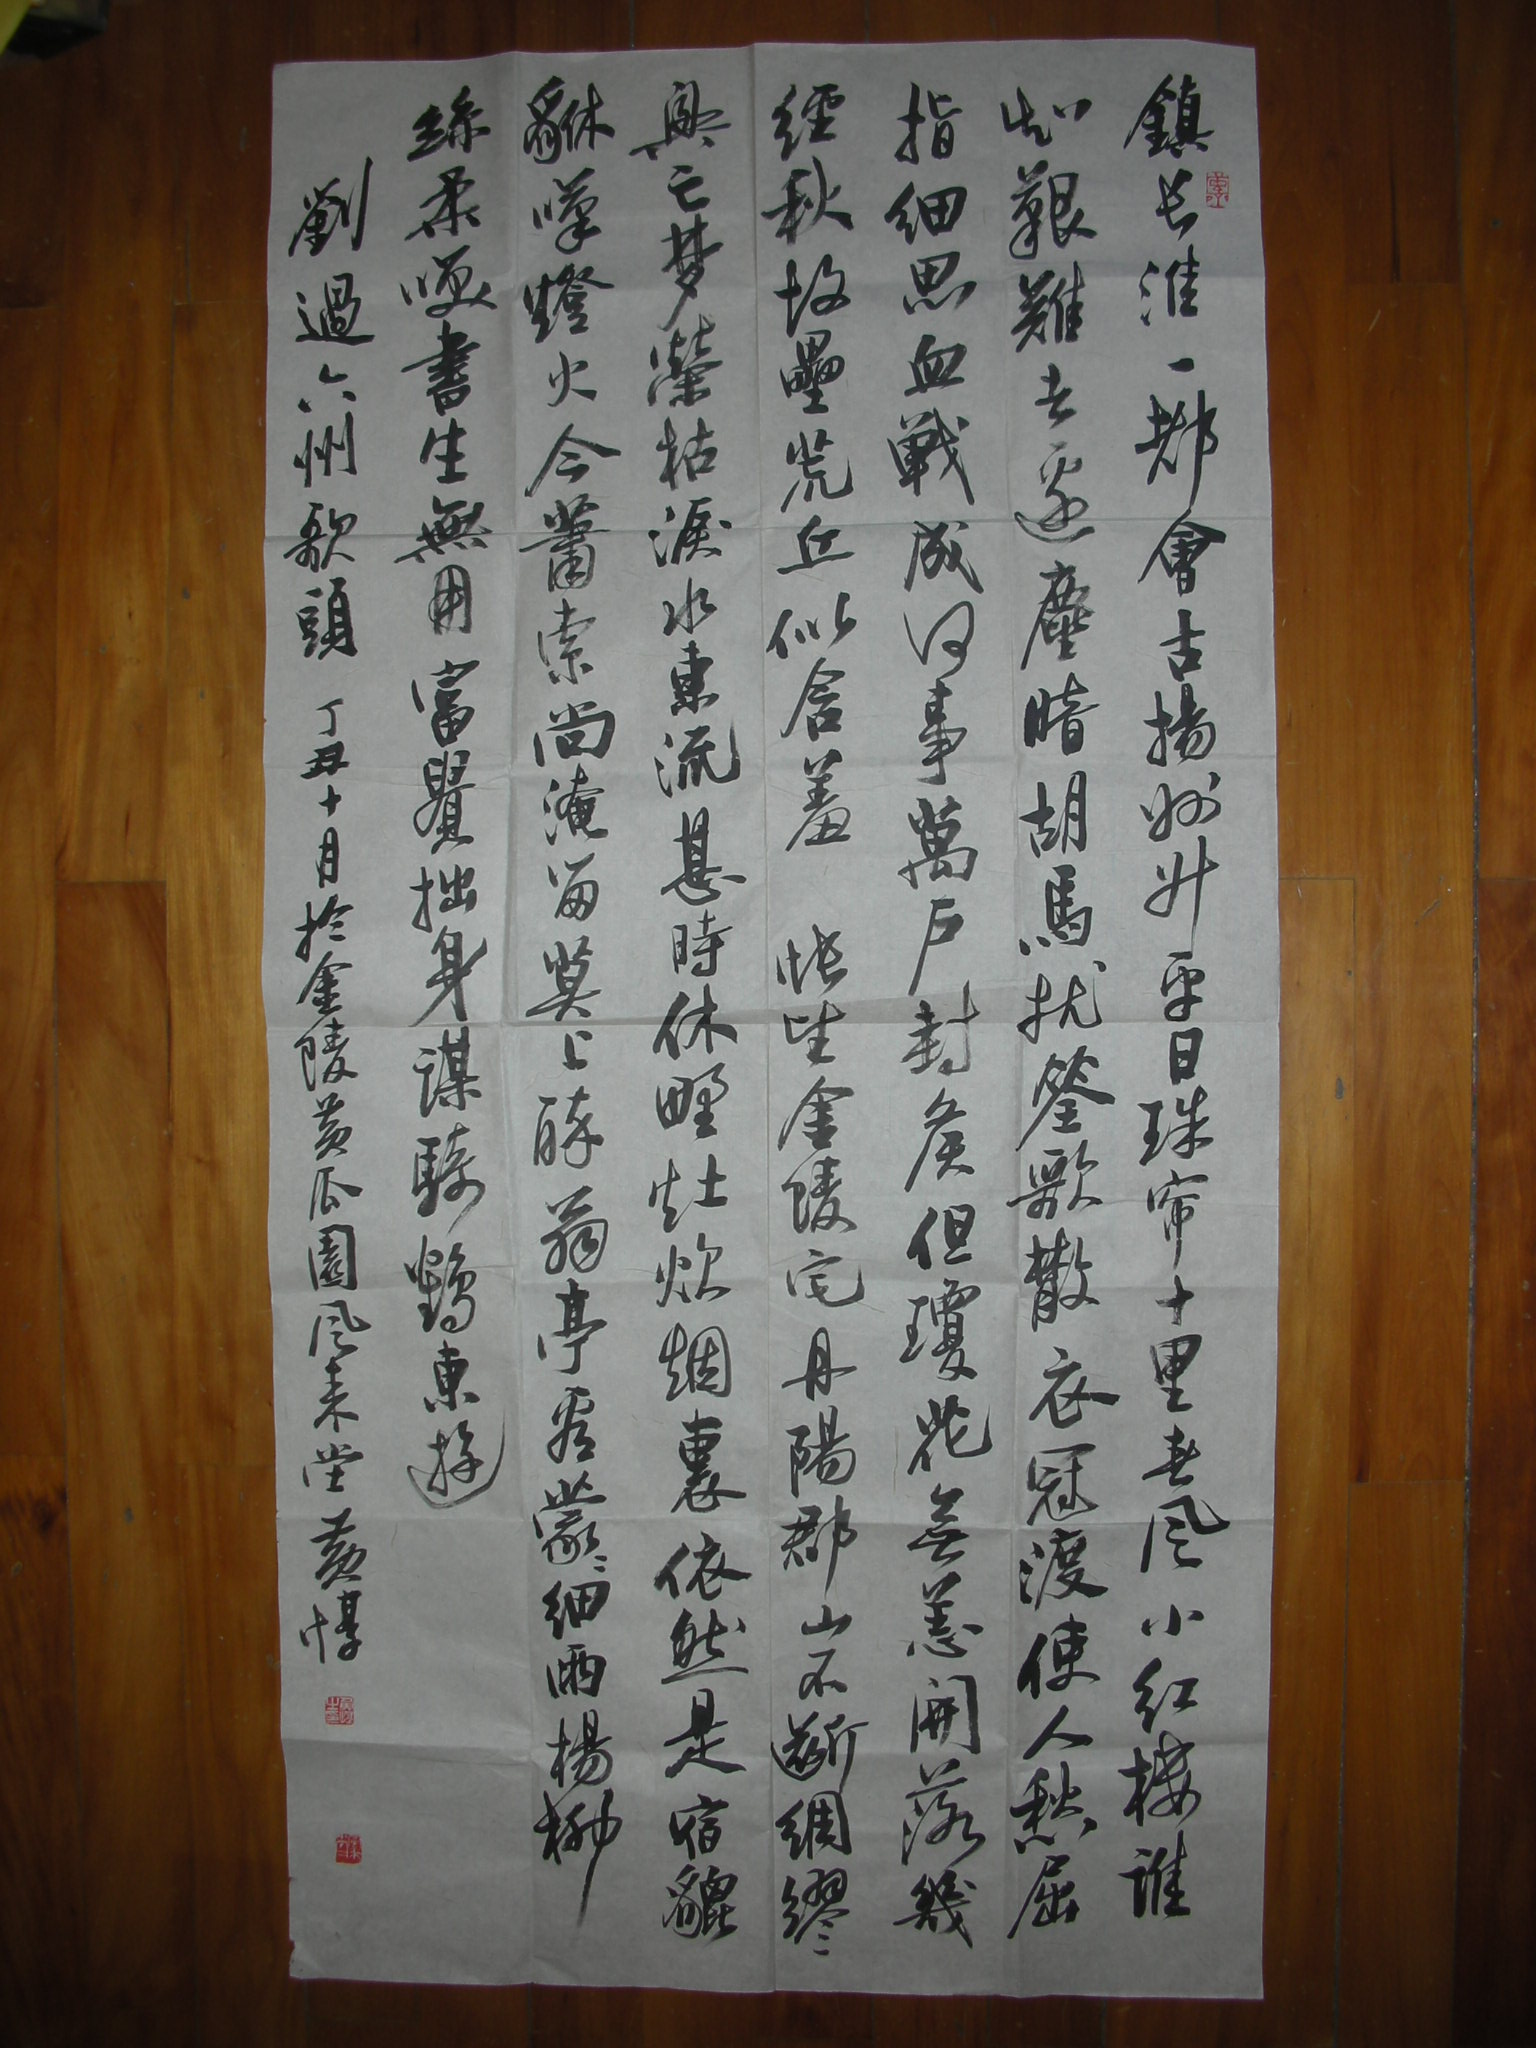 鎮長淮一都會古揚州升平日珠帘十里春風小紅樓誰
知艱難去邊塵暗胡馬扰笙歌散衣冠渡使人愁屈
指細思血戰成何事萬戶封侯但瓊花無恙開落幾
經秋故壘荒丘似含羞 悵望金陵宅丹陽郡山不斷綢繆
興亡梦榮枯淚水東流甚時休野灶炊烟裏依然是宿貔
貅嘆燈火今蕭索尚淹留莫上醉翁亭看濛濛細雨楊柳
絲柔笑書生無用富貴拙身謀騎鶴東遊
劉過六州歌頭 丁丑十月於金陵黃瓜園風來堂黃惇